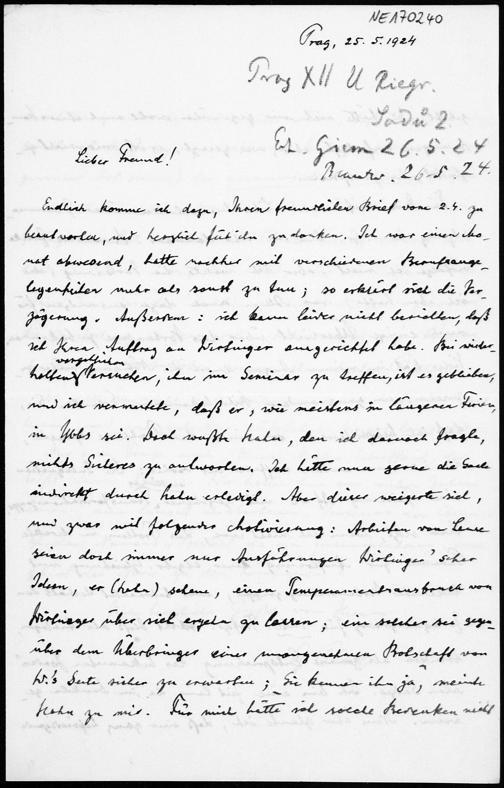 NE170240
Prag, 25. 5. 1924
Prag XII U Riegr.
Sadů 2.
Erh. Grinn 26. 5. 24
Beantw. 26. 5. 24.
Lieber Freund!
Endlich komme ich dazu, Ihren freundlichen Brief vom 2.4. zu
beantworten, und herzlich für ihn zu danken. Ich war einen Mo-
nat abwesend, hatte nachher mit verschiedenen Berufsange-
legenheiten mehr als sonst zu tun; so erklärt sich die Ver-
zögerung. Außerdem: ich kann leider nicht berichten, daß
ich Ihren Auftrag an Wirtinger ausgerichtet habe. Bei wieder-
holten vergeblichen Versuchen, ihn im Seminar zu treffen, ist es geblieben,
und ich vermutete, daß er, wie meistens in längeren Ferien,
in Ybbs sei. Doch wußte Hahn, den ich darnach fragte,
nichts Sicheres zu antworten. Ich hätte nun gerne die Sache
indirekt durch Hahn erledigt. Aber dieser weigerte sich,
und zwar mit folgender Motivierung: Arbeiten von Lense
seien doch immer nur Ausführungen Wirtinger'scher
Ideen, er (Hahn) scheue, einen Temperamentsausbruch von
Wirtinger über sich ergehn zu lassen; ein solcher sei gegen-
über dem Überbringer einer unangenehmen Botschaft von
W.'s Seite sicher zu erwarten; „Sie kennen ihn ja“, meinte
Hahn zu mir. Für mich hätte ich solche Bedenken nicht